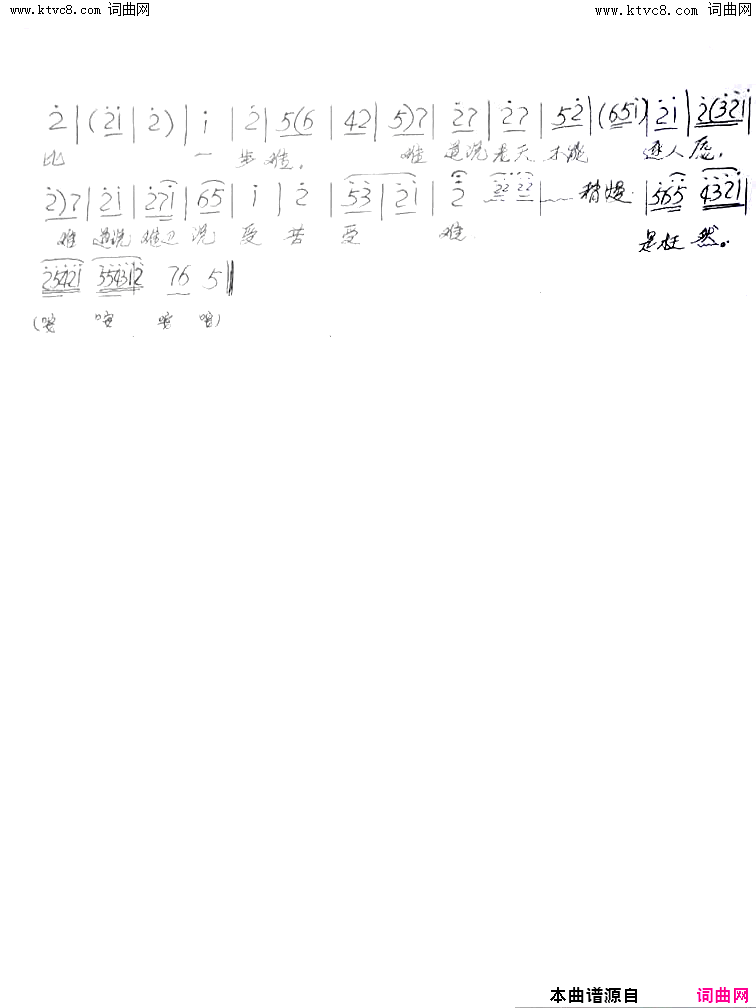 www.ktvc8.com 词曲网 www.ktvc8.com 词曲网
2̇ | (2̇i̇ | 2̇) | i̇ | 2̇ | 5(6 | 42 | 5)7 | 2̇7 | 2̇7 | 52̇ | (65i̇) | 2̇i̇ | 2̇(3̇2̇i̇ |
比 一 步难。 难 道说老天 不能 逐人愿。
2̇)7 | 2̇i̇ | 2̇7i̇ | 65 | i̇ | 2̇ | 5̇3̇ | 2̇i̇ | 2̇ 2̇2̇ 2̇2̇ | 稍慢 | 565 4̇3̇2̇i̇ |
难 道说 说 受 苦 受 难 是枉 然。
2̇5̇4̇2̇i̇ 5̇5̇4̇3̇i̇2̇ 76 5 ‖
本曲谱源自 词曲网